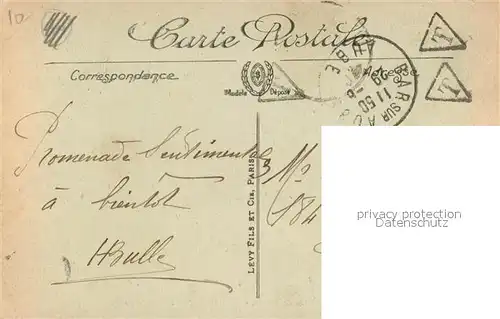 10
Carte Postale
Correspondance
Adresse
Modèle Déposé
BAR SUR AUBE
AUBE
11 50
29 - 8
T
T
Promenade Sentimentale
à bientôt
LEVY FILS ET CIE, PARIS
184
privacy protection
Datenschutz